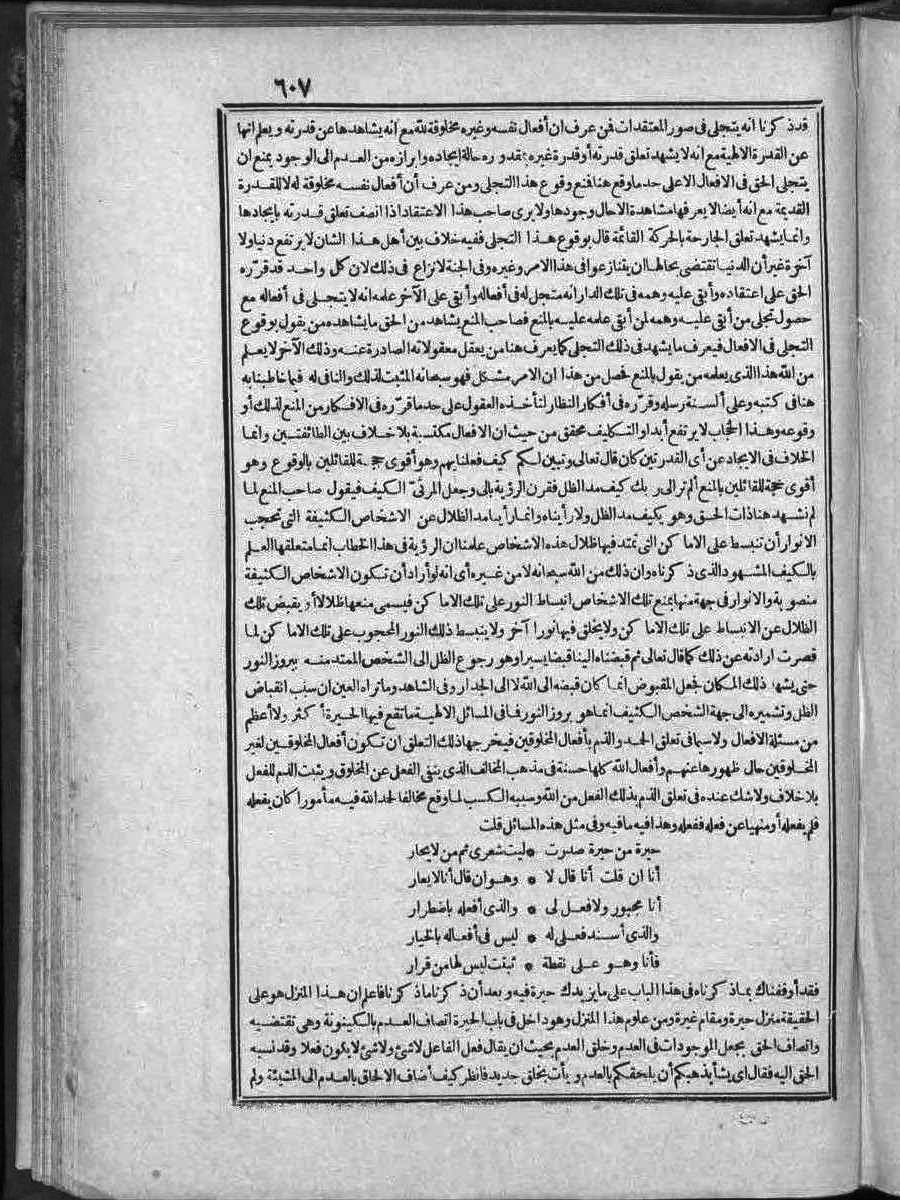 ٦٠٧
قد ذكرنا انه يتجلى فى صور المعتقدات فمن عرف ان أفعال نفسه وغيره مخلوقة لله مع انه يشاهدها عن قدرته ويعلم انها
عن القدرة الالهية مع انه لا يشهد تعلق قدرته أو قدرة غيره بمقدوره حالة ايجاده وابرازه من العدم الى الوجود يمنع ان
يتجلى الحق فى الافعال الا على حد ما وقع هنا فمنع وقوع هذا التجلى ومن عرف أن أفعال نفسه مخلوقة له لا للقدرة
القديمة مع انه أيضا لا يعرفها مشاهدة الا حال وجودها ولا يرى صاحب هذا الاعتقاد اذا انصف تعلق قدرته بايجادها
وانما يشهد تعلق الجارحة بالحركة القائمة قال بوقوع هذا التجلى ففيه خلاف بين أهل هذا الشان لا يرتفع دنيا ولا
آخرة غير أن الدنيا تقتضى بحالها ان يتنازعوا فى هذا الامر وغيره وفى الجنة لا نزاع فى ذلك لان كل واحد قد قرّره
الحق على اعتقاده وأبقى عليه وهمه فى تلك الدار انه متجل له فى أفعاله وأبقى على الآخر علمه انه لا يتجلى فى أفعاله مع
حصول تجلى من أبقى عليه وهمه لمن أبقى علمه عليه بالمنع فصاحب المنع يشاهد من الحق ما يشاهده من يقول بوقوع
التجلى فى الافعال فيعرف ما يشهد فى ذلك التجلى كما يعرف هنا من يعقل معقولاته الصادرة عنه وذلك الآخر لا يعلم
من الله هذا الذى يعلمه من يقول بالمنع فحصل من هذا ان الامر مشكل فهو سبحانه المثبت لذلك والنافى له فيما خاطبنا به
هنا فى كتبه وعلى ألسنة رسله وقرّره فى أفكار النظار لتأخذه العقول على حد ما قرّره فى الافكار من المنع لذلك أو
وقوعه وهذا الحجاب لا يرتفع أبدا والتكليف محقق من حيث ان الافعال مكتسبة بلا خلاف بين الطائفتين وانما
الخلاف فى الايجاد عن أى القدرتين كان قال تعالى وتبين لكم كيف فعلنا بهم وهو أقوى حجة للقائلين بالوقوع وهو
أقوى حجة للقائلين بالمنع ألم تر الى ربك كيف مد الظل فقرن الرؤية بالى وجعل المرئىّ الكيف فيقول صاحب المنع لما
لم نشهد هنا ذات الحق وهو يكيف مد الظل ولا رأيناه وانما رأينا مد الظلال عن الاشخاص الكثيفة التى تحجب
الانوار أن تنبسط على الاماكن التى تمتد فيها ظلال هذه الاشخاص علمنا ان الرؤية فى هذا الخطاب انما متعلقها العلم
بالكيف المشهود الذى ذكرناه وان ذلك من الله سبحانه لا من غيره أى انه لو أراد أن تكون الاشخاص الكثيفة
منصوبة والانوار فى جهة منها يمنع تلك الاشخاص انبساط النور على تلك الاماكن فيسمى منعها ظلالا أو يقبض تلك
الظلال عن الانبساط على تلك الاماكن ولا يخلق فيها نورا آخر ولا ينبسط ذلك النور المحجوب على تلك الاماكن لما
قصرت ارادته عن ذلك كما قال تعالى ثم قبضناه الينا قبضا يسيرا وهو رجوع الظل الى الشخص الممتد منه ببروز النور
حتى يشهد ذلك المكان فجعل المقبوض انما كان قبضه الى الله لا الى الجدار وفى الشاهد وما تراه العين ان سبب انقباض
الظل وتشميره الى جهة الشخص الكثيف انما هو بروز النور فما فى المسائل الالهية ما تقع فيها الحيرة أكثر ولا أعظم
من مسئلة الافعال ولا سيما فى تعلق الحمد والذم بأفعال المخلوقين فيخرجها ذلك التعلق ان تكون أفعال المخلوقين لغير
المخلوقين حال ظهورها عنهم وأفعال الله كلها حسنة فى مذهب المخالف الذى ينفى الفعل عن المخلوق ويثبت الذم للفعل
بلا خلاف ولا شك عنده فى تعلق الذم بذلك الفعل من الله وسببه الكسب لما وقع مخالفا لحد الله فيه مأمورا كان بفعله
فلم يفعله أو منهيا عن فعله ففعله وهذا فيه ما فيه وفى مثل هذه المسائل قلت
حيرة من حيرة صدرت * ليت شعرى ثم من لا يحار
أنا ان قلت أنا قال لا * وهو ان قال أنا لا يعار
أنا مجبور ولا فعل لى * والذى أفعله باضطرار
والذى أسند فعلى له * ليس فى أفعاله بالخيار
فأنا وهو على نقطة * ثبتت ليس لها من قرار
فقد أوقفناك بما ذكرناه فى هذا الباب على ما يزيدك حيرة فيه وبعد أن ذكرنا ما ذكرنا فاعلم ان هذا المنزل هو على
الحقيقة منزل حيرة ومقام غيرة ومن علوم هذا المنزل وهو داخل فى باب الحيرة اتصاف العدم بالكينونة وهى تقتضيه
واتصاف الحق بجعل الموجودات فى العدم وخلق العدم بحيث ان يقال فعل الفاعل لا شئ ولا شئ لا يكون فعلا وقد نسبه
الحق اليه فقال ان يشأ يذهبكم أن يلحقكم بالعدم ويأت بخلق جديد فانظر كيف أضاف الالحاق بالعدم الى المشيئة ولم